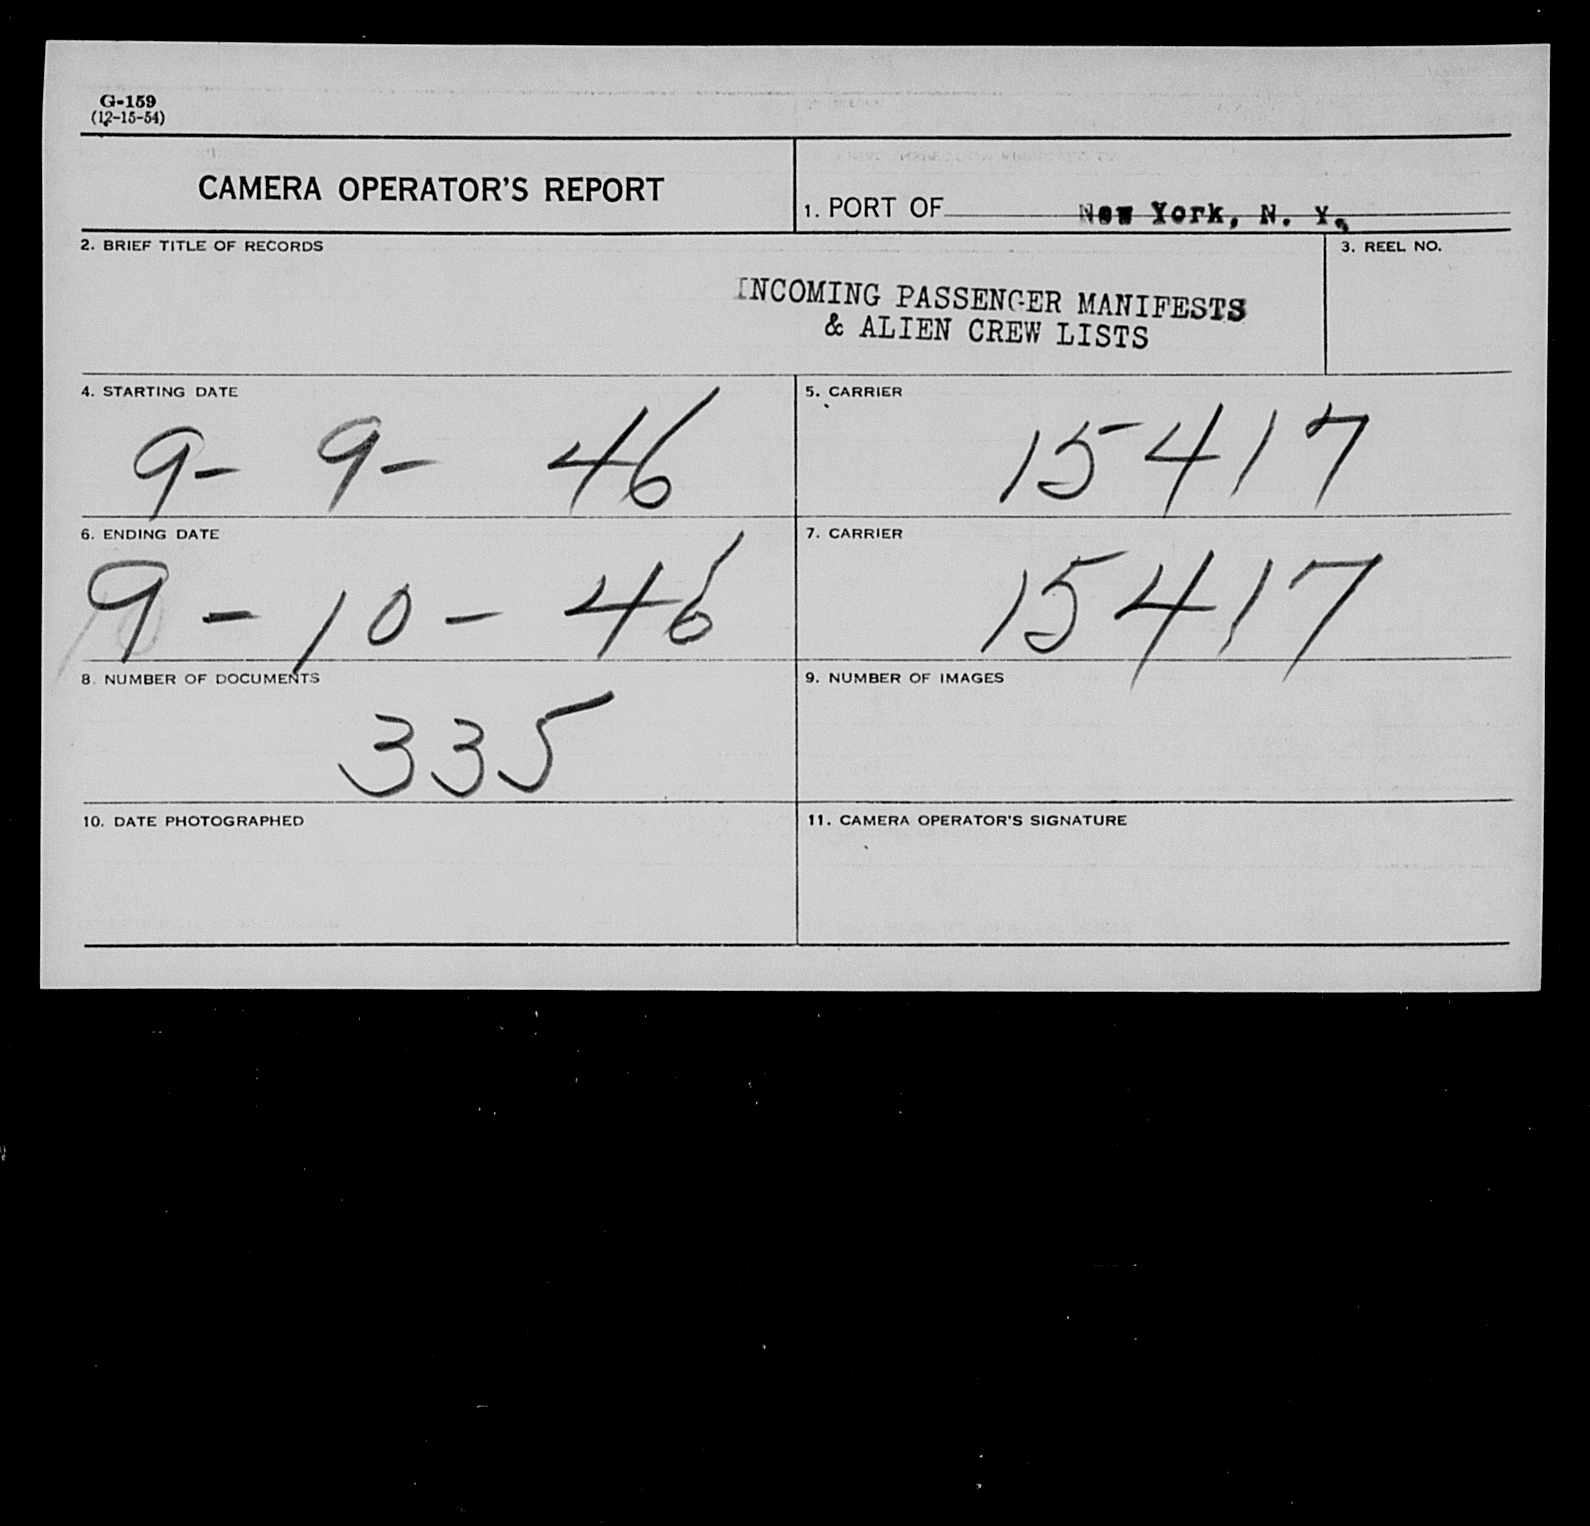 G-159
(12-15-54)
CAMERA OPERATOR'S REPORT
1. PORT OF New York, N. Y.
2. BRIEF TITLE OF RECORDS
3. REEL NO.
INCOMING PASSENGER MANIFESTS
& ALIEN CREW LISTS
4. STARTING DATE
9- 9- 46
5. CARRIER
15417
6. ENDING DATE
9-10-46
7. CARRIER
15417
8. NUMBER OF DOCUMENTS
335
9. NUMBER OF IMAGES
10. DATE PHOTOGRAPHED
11. CAMERA OPERATOR'S SIGNATURE